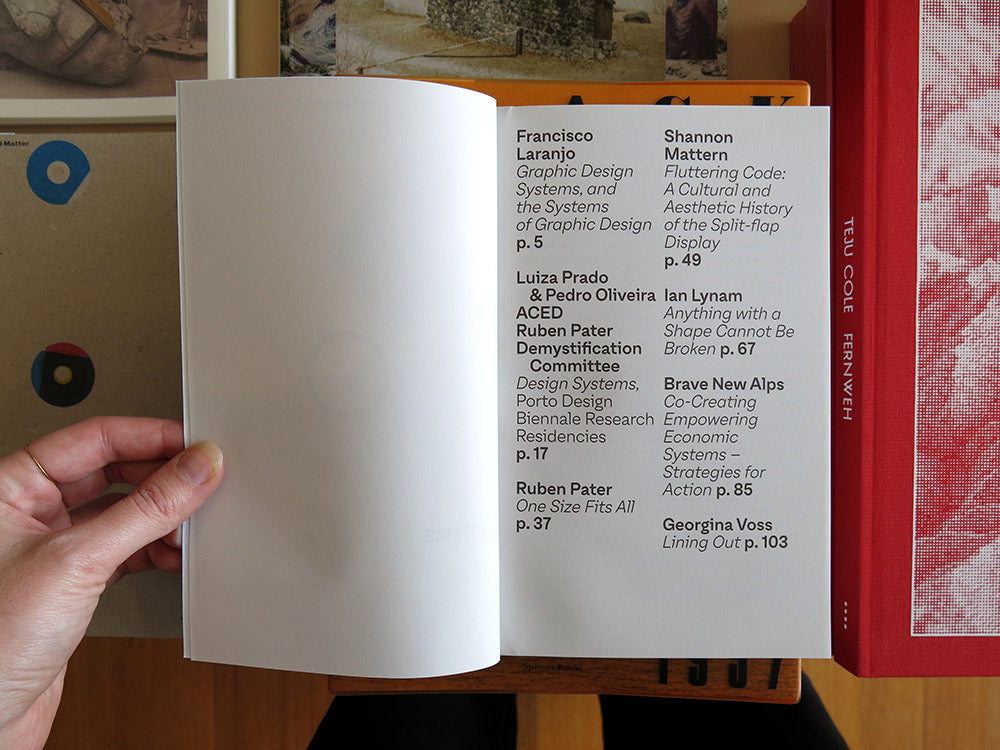 l Matter
A C K
Francisco
Laranjo
Graphic Design
Systems, and
the Systems
of Graphic Design
p. 5
Luiza Prado
& Pedro Oliveira
ACED
Ruben Pater
Demystification
Committee
Design Systems,
Porto Design
Biennale Research
Residencies
p. 17
Ruben Pater
One Size Fits All
p. 37
Shannon
Mattern
Fluttering Code:
A Cultural and
Aesthetic History
of the Split-flap
Display
p. 49
Ian Lynam
Anything with a
Shape Cannot Be
Broken p. 67
Brave New Alps
Co-Creating
Empowering
Economic
Systems –
Strategies for
Action p. 85
Georgina Voss
Lining Out p. 103
TEJU COLE FERNWEH
Spector Books
1997